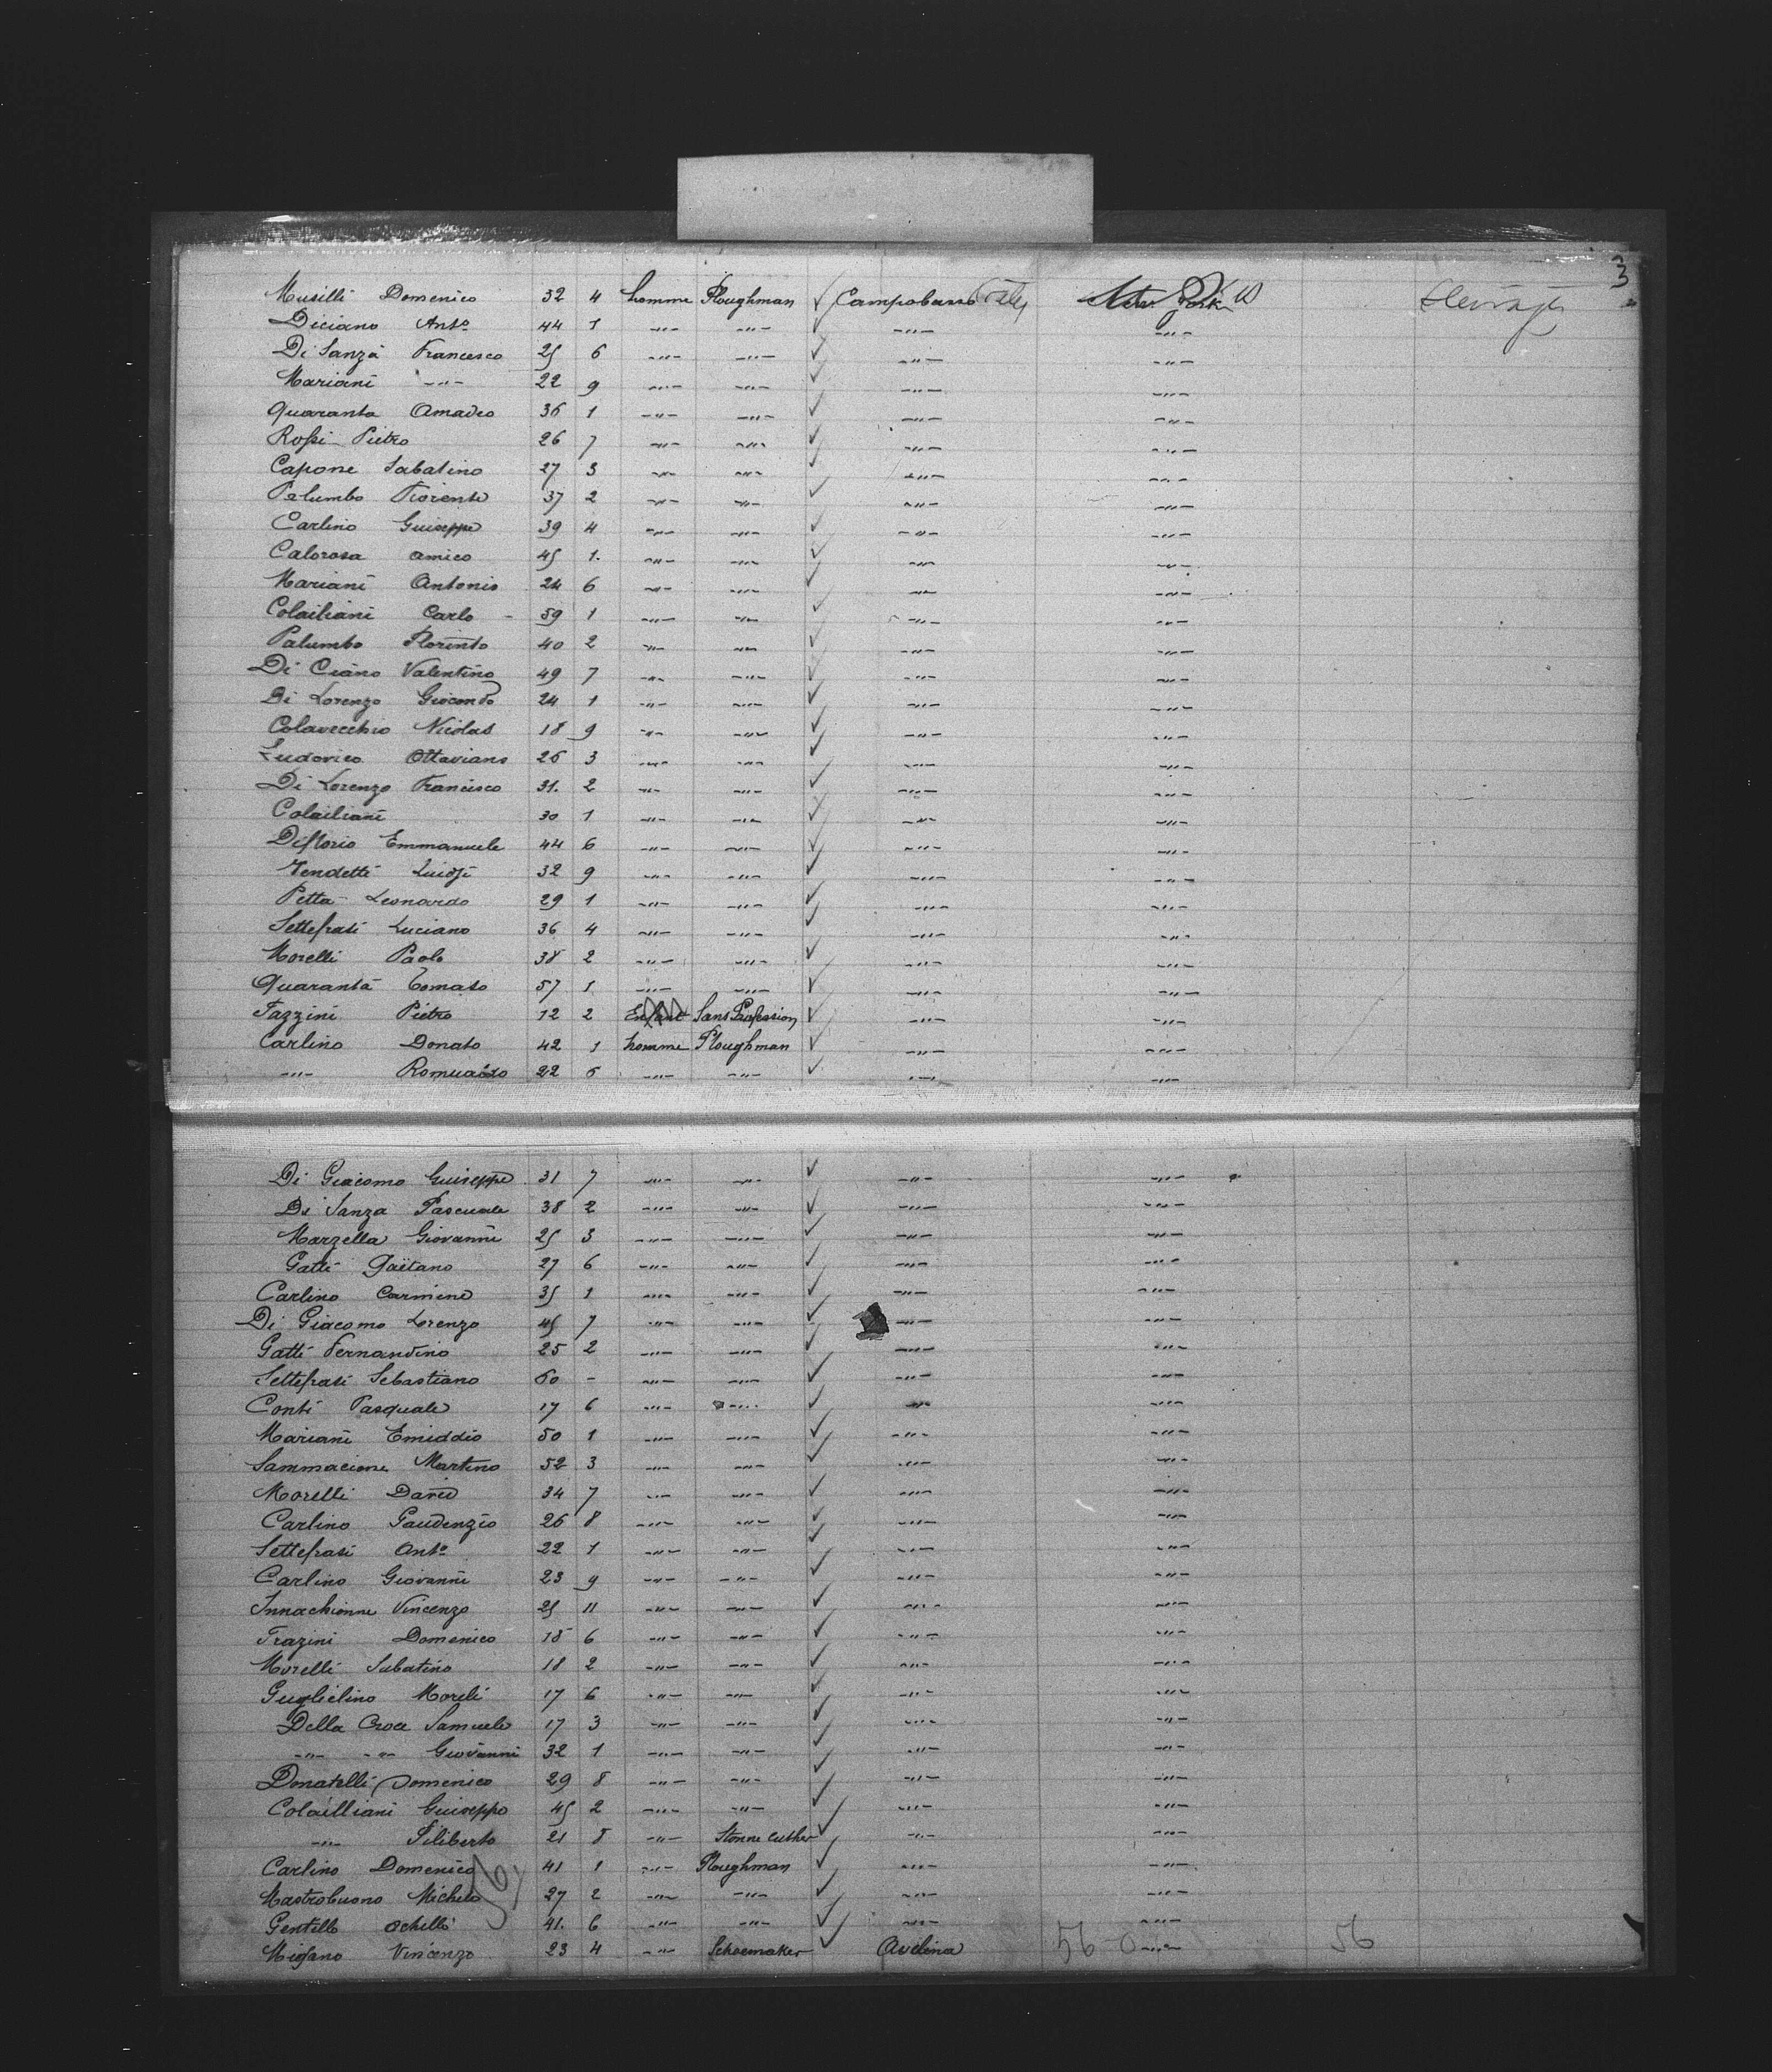 3
Musilli Domenico 32 4 homme Ploughman ✓ Campobasso Italy New York Steerage
Diciano Anto 44 1 -"- -"- ✓ -"- -"-
Di Sanza Francesco 25 6 -"- -"- ✓ -"- -"-
Mariani -"- 22 9 -"- -"- ✓ -"- -"-
Quaranta Amadeo 36 1 -"- -"- ✓ -"- -"-
Rossi Pietro 26 7 -"- -"- ✓ -"- -"-
Capone Sabatino 27 3 -"- -"- ✓ -"- -"-
Palumbo Fiorento 37 2 -"- -"- ✓ -"- -"-
Carlino Guiseppe 39 4 -"- -"- ✓ -"- -"-
Calorosa amico 45 1. -"- -"- ✓ -"- -"-
Mariani Antonio 24 6 -"- -"- ✓ -"- -"-
Colailiani Carlo 59 1 -"- -"- ✓ -"- -"-
Palumbo Florinto 40 2 -"- -"- ✓ -"- -"-
Di Ciano Valentino 49 7 -"- -"- ✓ -"- -"-
Di Lorenzo Giocondo 24 1 -"- -"- ✓ -"- -"-
Colavecchio Nicolas 18 9 -"- -"- ✓ -"- -"-
Ludovico Ottaviano 26 3 -"- -"- ✓ -"- -"-
Di Lorenzo Francisco 31. 2 -"- -"- ✓ -"- -"-
Colailiani 30 1 -"- -"- ✓ -"- -"-
Diflorio Emmanuele 44 6 -"- -"- ✓ -"- -"-
Vendetti Luidji 32 9 -"- -"- ✓ -"- -"-
Petta Leonardo 29 1 -"- -"- ✓ -"- -"-
Settefrati Luciano 36 4 -"- -"- ✓ -"- -"-
Morelli Paolo 38 2 -"- -"- ✓ -"- -"-
Quaranta Tomaso 57 1 -"- -"- ✓ -"- -"-
Fazzini Pietro 12 2 Enfant Sans Profession ✓ -"- -"-
Carlino Donato 42 1 homme Ploughman ✓ -"- -"-
-"- Romualdo 22 6 -"- -"- ✓ -"- -"-
Di Giacomo Guiseppe 31 7 -"- -"- ✓ -"- -"-
Di Sanza Pascuale 38 2 -"- -"- ✓ -"- -"-
Marzella Giovanni 25 3 -"- -"- ✓ -"- -"-
Gatti Gaïtano 27 6 -"- -"- ✓ -"- -"-
Carlino Carmine 35 1 -"- -"- ✓ -"- -"-
Di Giacomo Lorenzo 45 7 -"- -"- ✓ -"- -"-
Gatti Fernandino 25 2 -"- -"- ✓ -"- -"-
Settefrati Sebastiano 60 - -"- -"- ✓ -"- -"-
Conti Pasquale 17 6 -"- -"- ✓ -"- -"-
Mariani Emiddio 50 1 -"- -"- ✓ -"- -"-
Sammacione Martino 52 3 -"- -"- ✓ -"- -"-
Morelli David 34 7 -"- -"- ✓ -"- -"-
Carlino Gaudenzio 26 8 -"- -"- ✓ -"- -"-
Settefrati Anto 22 1 -"- -"- ✓ -"- -"-
Carlino Giovanni 23 9 -"- -"- ✓ -"- -"-
Innachionne Vincenzo 25 11 -"- -"- ✓ -"- -"-
Frazini Domenico 18 6 -"- -"- ✓ -"- -"-
Morelli Sabatino 18 2 -"- -"- ✓ -"- -"-
Guglielino Moreli 17 6 -"- -"- ✓ -"- -"-
Della Croce Samuele 17 3 -"- -"- ✓ -"- -"-
-"- -"- Giovanni 32 1 -"- -"- ✓ -"- -"-
Donatelli Domenico 29 8 -"- -"- ✓ -"- -"-
Colailliani Guiseppe 45 2 -"- -"- ✓ -"- -"-
-"- Filiberto 21 8 -"- Stonne cuther ✓ -"- -"-
Carlino Domenico 41 1 -"- Ploughman ✓ -"- -"-
Mastrobuono Michele 27 2 -"- -"- ✓ -"- -"-
Gentille achille 41. 6 -"- -"- ✓ -"- -"-
Vincenzo 23 4 -"- Schoemaker ✓ Avelina 56-0 -"- 56